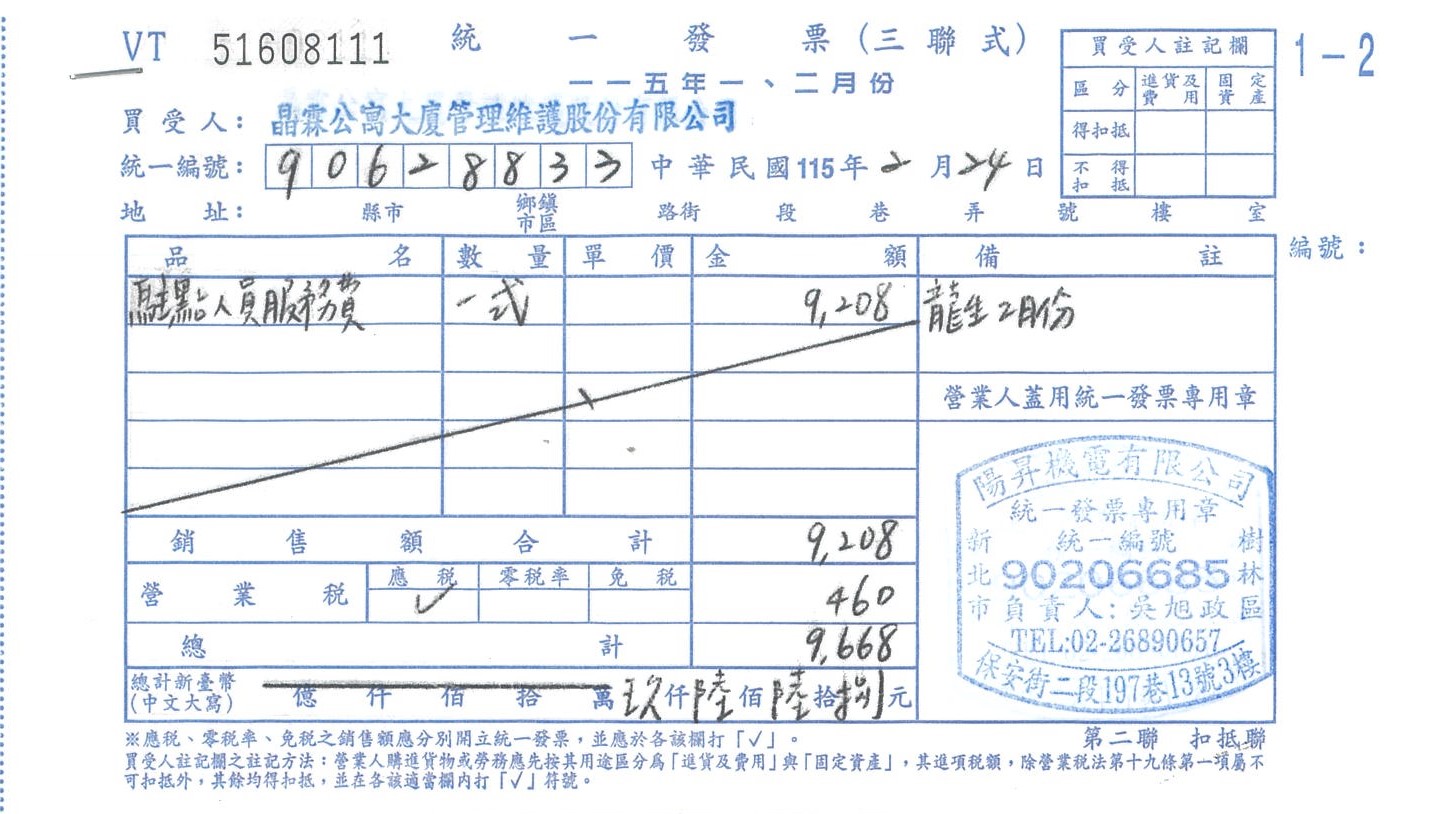 VT 51608111 統一發票(三聯式) 1-2
一一五年一、二月份
買受人註記欄
區分 進貨及費用 固定資產
得扣抵
不得扣抵
買受人: 晶霖公寓大廈管理維護股份有限公司
統一編號: 90628833 中華民國115年2月24日
地址: 縣市 鄉鎮市區 路街 段 巷 弄 號 樓 室
編號:
品名 數量 單價 金額 備註
駐點人員服務費 一式 9,208 龍生2月份
營業人蓋用統一發票專用章
銷售額合計 9,208
營業稅 應稅 ✓ 零稅率 免稅 460
總計 9,668
總計新臺幣(中文大寫) 億仟佰拾萬玖仟陸佰陸拾捌元
陽昇機電有限公司
統一發票專用章
統一編號
90206685
負責人:吳旭政
TEL:02-26890657
新北市樹林區
保安街二段197巷13號3樓
※應稅、零稅率、免稅之銷售額應分別開立統一發票,並應於各該欄打「✓」。
第二聯 扣抵聯
買受人註記欄之註記方法:營業人購進貨物或勞務應先按其用途區分為「進貨及費用」與「固定資產」,其進項稅額,除營業稅法第十九條第一項屬不
可扣抵外,其餘均得扣抵,並在各該適當欄內打「✓」符號。